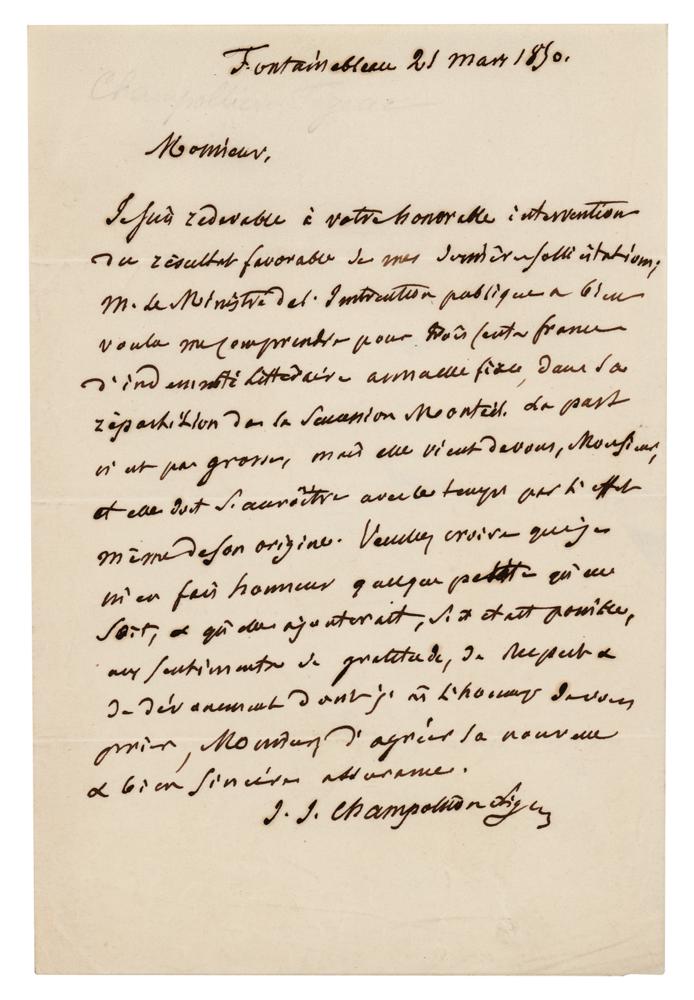 Fontainebleau 21 mars 1850.
Champollion Figeac
Monsieur,
Je suis redevable à votre honorable intervention
du résultat favorable de mes dernières sollicitations;
M. le Ministre de l'Instruction publique a bien
voulu me comprendre pour trois cents francs
d'indemnité littéraire annuelle fixe, dans la
répartition de la succession Monteil. La part
n'est pas grosse, mais elle vient de vous, Monsieur,
et elle doit s'accroître avec le temps par l'effet
même de son origine. Veuillez croire que je
m'en fais honneur quelque petite qu'elle
soit, & qu'elle ajouterait, s'il était possible,
aux sentiments de gratitude, de respect &
de dévouement dont j'ai l'honneur de vous
prier, Monsieur, d'agréer la nouvelle
& bien sincère assurance.
J. J. Champollion Figeac